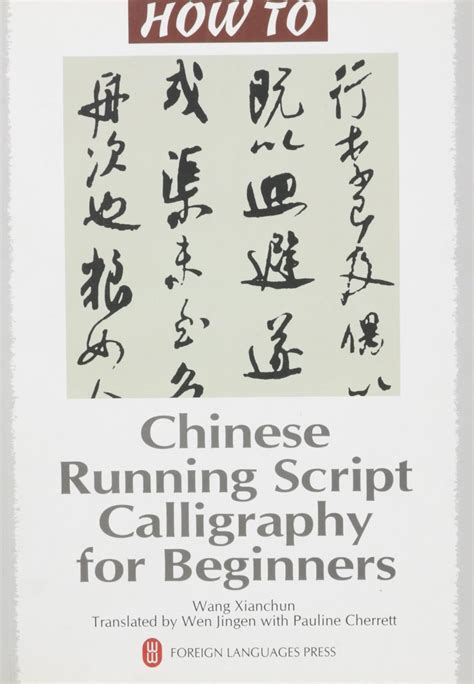 HOW TO
行
既以迴避遂
或渠未至
次也
Chinese
Running Script
Calligraphy
for Beginners
Wang Xianchun
Translated by Wen Jingen with Pauline Cherrett
FOREIGN LANGUAGES PRESS